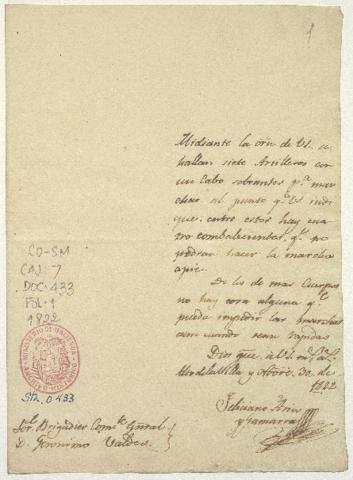 1
Mediante la orn de Vs. se
hallan siete Artilleros con
un Cabo sobrantes pa mar
char al punto qe Vs indi
que: entre estos hay cua
tro combalecientes, qe no
podran hacer la marcha
apie.
De los de mas Cuerpos
no hay cosa alguna qe
pueda impedir las marchas
aun cuando sean rapidas
Dios gue. à Vs. ms as.
de la Villa y 30 de
1822
y Gamarra
CO-SM
CAJ: 7
DOC: 433
FOL: 1
1822
MINISTERIO DE HACIENDA
Stz. 0433
Sor. Brigadier Comte Gnral
D. Geronimo Valdes.